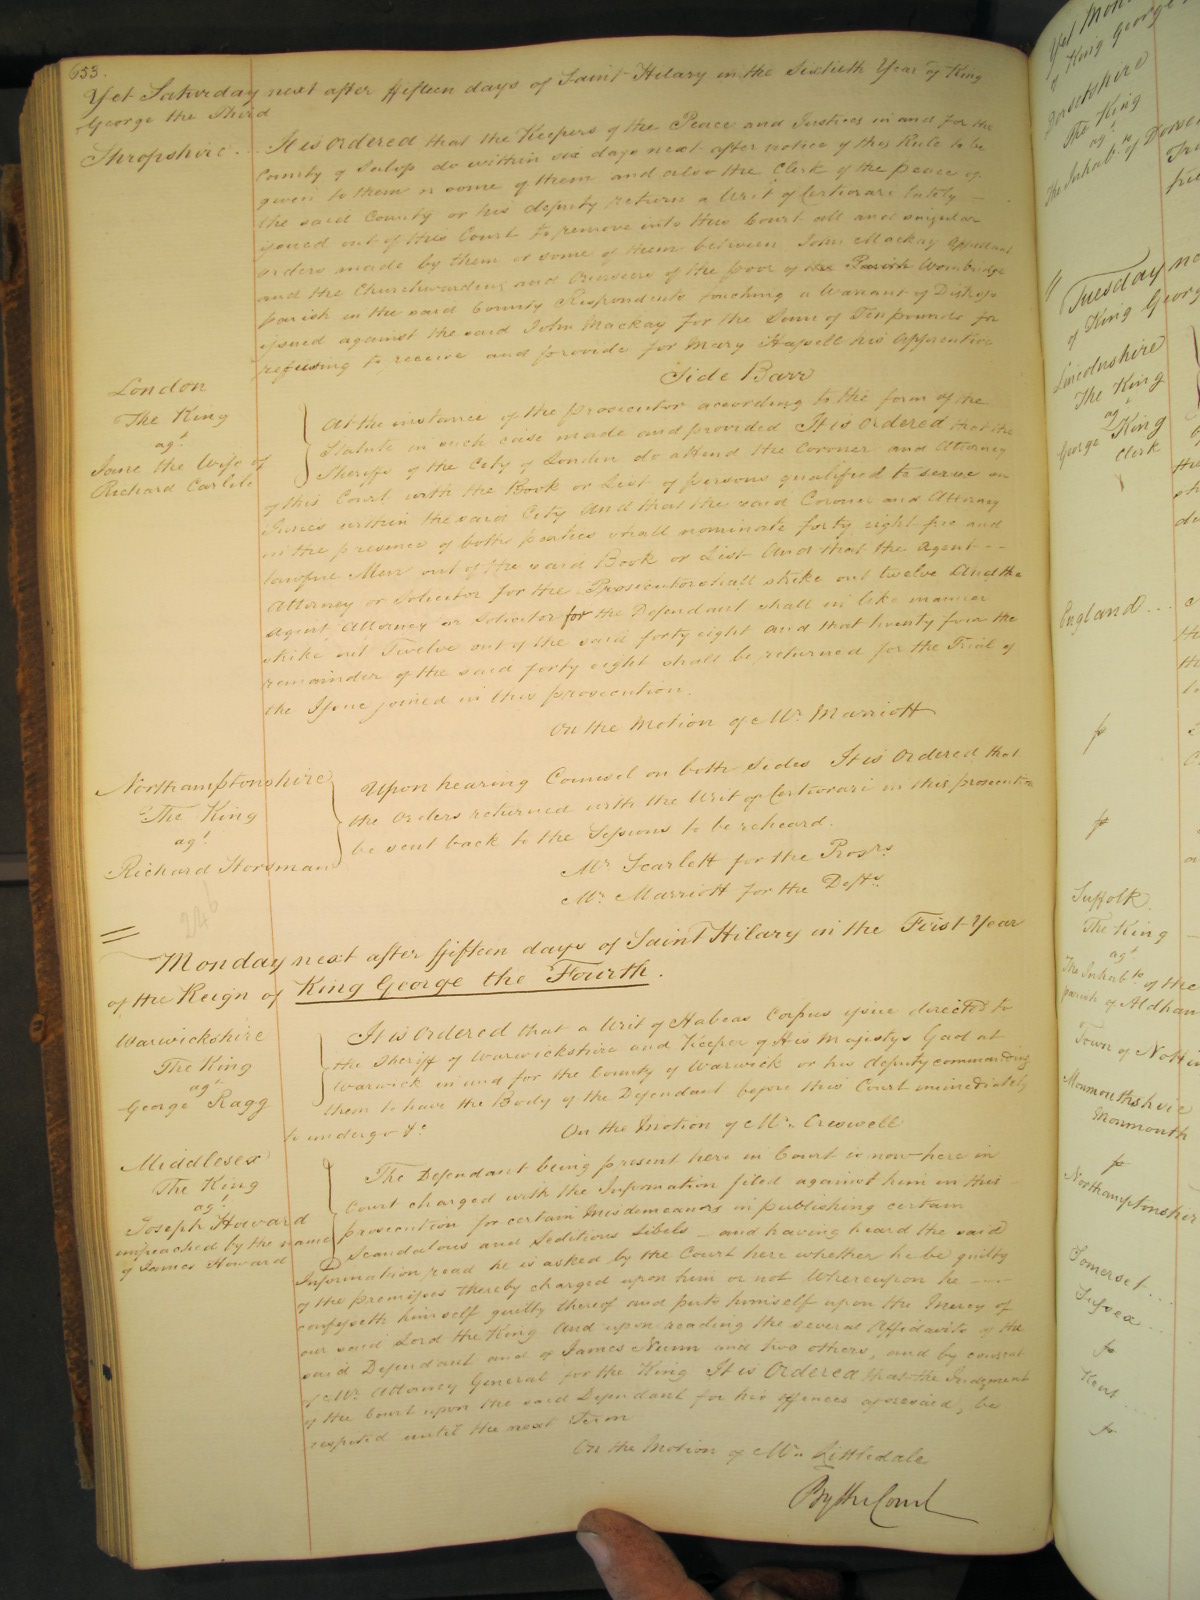 653.
Yet Saturday next after fifteen days of Saint Hilary in the Sixtieth Year of King
George the Third
Shropshire. It is ordered that the Keepers of the Peace and Justices in and for the
County of Salop do within six days next after notice of this Rule to be
given to them or some of them and also the Clerk of the peace of
the said County or his deputy return a Writ of Certiorari lately
issued out of this Court to remove into this Court all and singular
orders made by them or some of them between John Mackay Appellant
and the Churchwardens and Overseers of the poor of the Parish Wombridge
parish in the said County Respondents touching a Warrant of Distress
issued against the said John Mackay for the Sum of Ten pounds for
refusing to receive and provide for Mary Hassell his Apprentice
Side Barr
London
The King
agt
Jane the Wife of
Richard Carlile
At the instance of the prosecutor according to the form of the
Statute in such case made and provided It is ordered that the
Sheriffs of the City of London do attend the Coroner and Attorney
of this Court with the Book or List of persons qualified to serve on
Juries within the said City And that the said Coroner and Attorney
in the presence of both parties shall nominate forty eight free and
lawful Men out of the said Book or List And that the Agent
Attorney or Solicitor for the Prosecutor shall strike out twelve And the
Agent Attorney or Solicitor for the Defendant shall in like manner
strike out Twelve out of the said forty eight And that twenty four the
remainder of the said forty eight shall be returned for the Trial of
the Issue joined in this prosecution.
On the Motion of Mr. Marriott
Northamptonshire
The King
agt.
Richard Horsman
Upon hearing Counsel on both sides It is Ordered that
the Orders returned with the Writ of Certiorari in this prosecution
be sent back to the Sessions to be reheard.
Mr. Scarlett for the Prosrs
Mr. Marriott for the Defts.
246
Monday next after fifteen days of Saint Hilary in the First Year
of the Reign of King George the Fourth.
Warwickshire
The King
agt
George Ragg
It is Ordered that a Writ of Habeas Corpus issue directed to
the Sheriff of Warwickshire and Keeper of His Majestys Gaol at
Warwick in and for the County of Warwick or his deputy commanding
them to have the Body of the Defendant before this Court immediately
to undergo &c
On the Motion of Mr. Creswell
Middlesex
The King
agt
Joseph Howard
impeached by the name
of James Howard
The Defendant being present here in Court is now here in
Court charged with the Information filed against him in this
prosecution for certain Misdemeanors in publishing certain
Scandalous and Seditious Libels and having heard the said
Information read he is asked by the Court here whether he be guilty
of the premises thereby charged upon him or not Whereupon he
confesseth himself guilty thereof and puts himself upon the Mercy of
our said Lord the King And upon reading the several Affidavits of the
said Defendant and of James Nunn and two others, and by consent
of Mr. Attorney General for the King It is Ordered that the Judgment
of the Court upon the said Defendant for his offences aforesaid, be
respited until the next Term
On the Motion of Mr. Littledale
By the Court
Yet Mon
of King George
Dorsetshire
The King
agt
The Inhabts of Dorset
Tuesday
of King Georg
Lincolnshire
The King
agt
George King
Clerk
England
Suffolk.
The King
agt
The Inhabts of the
parish of Aldham
Town of Nottin
Monmouthshire
Monmouth
Northamptonshir
Somerset
Sussex
Kent